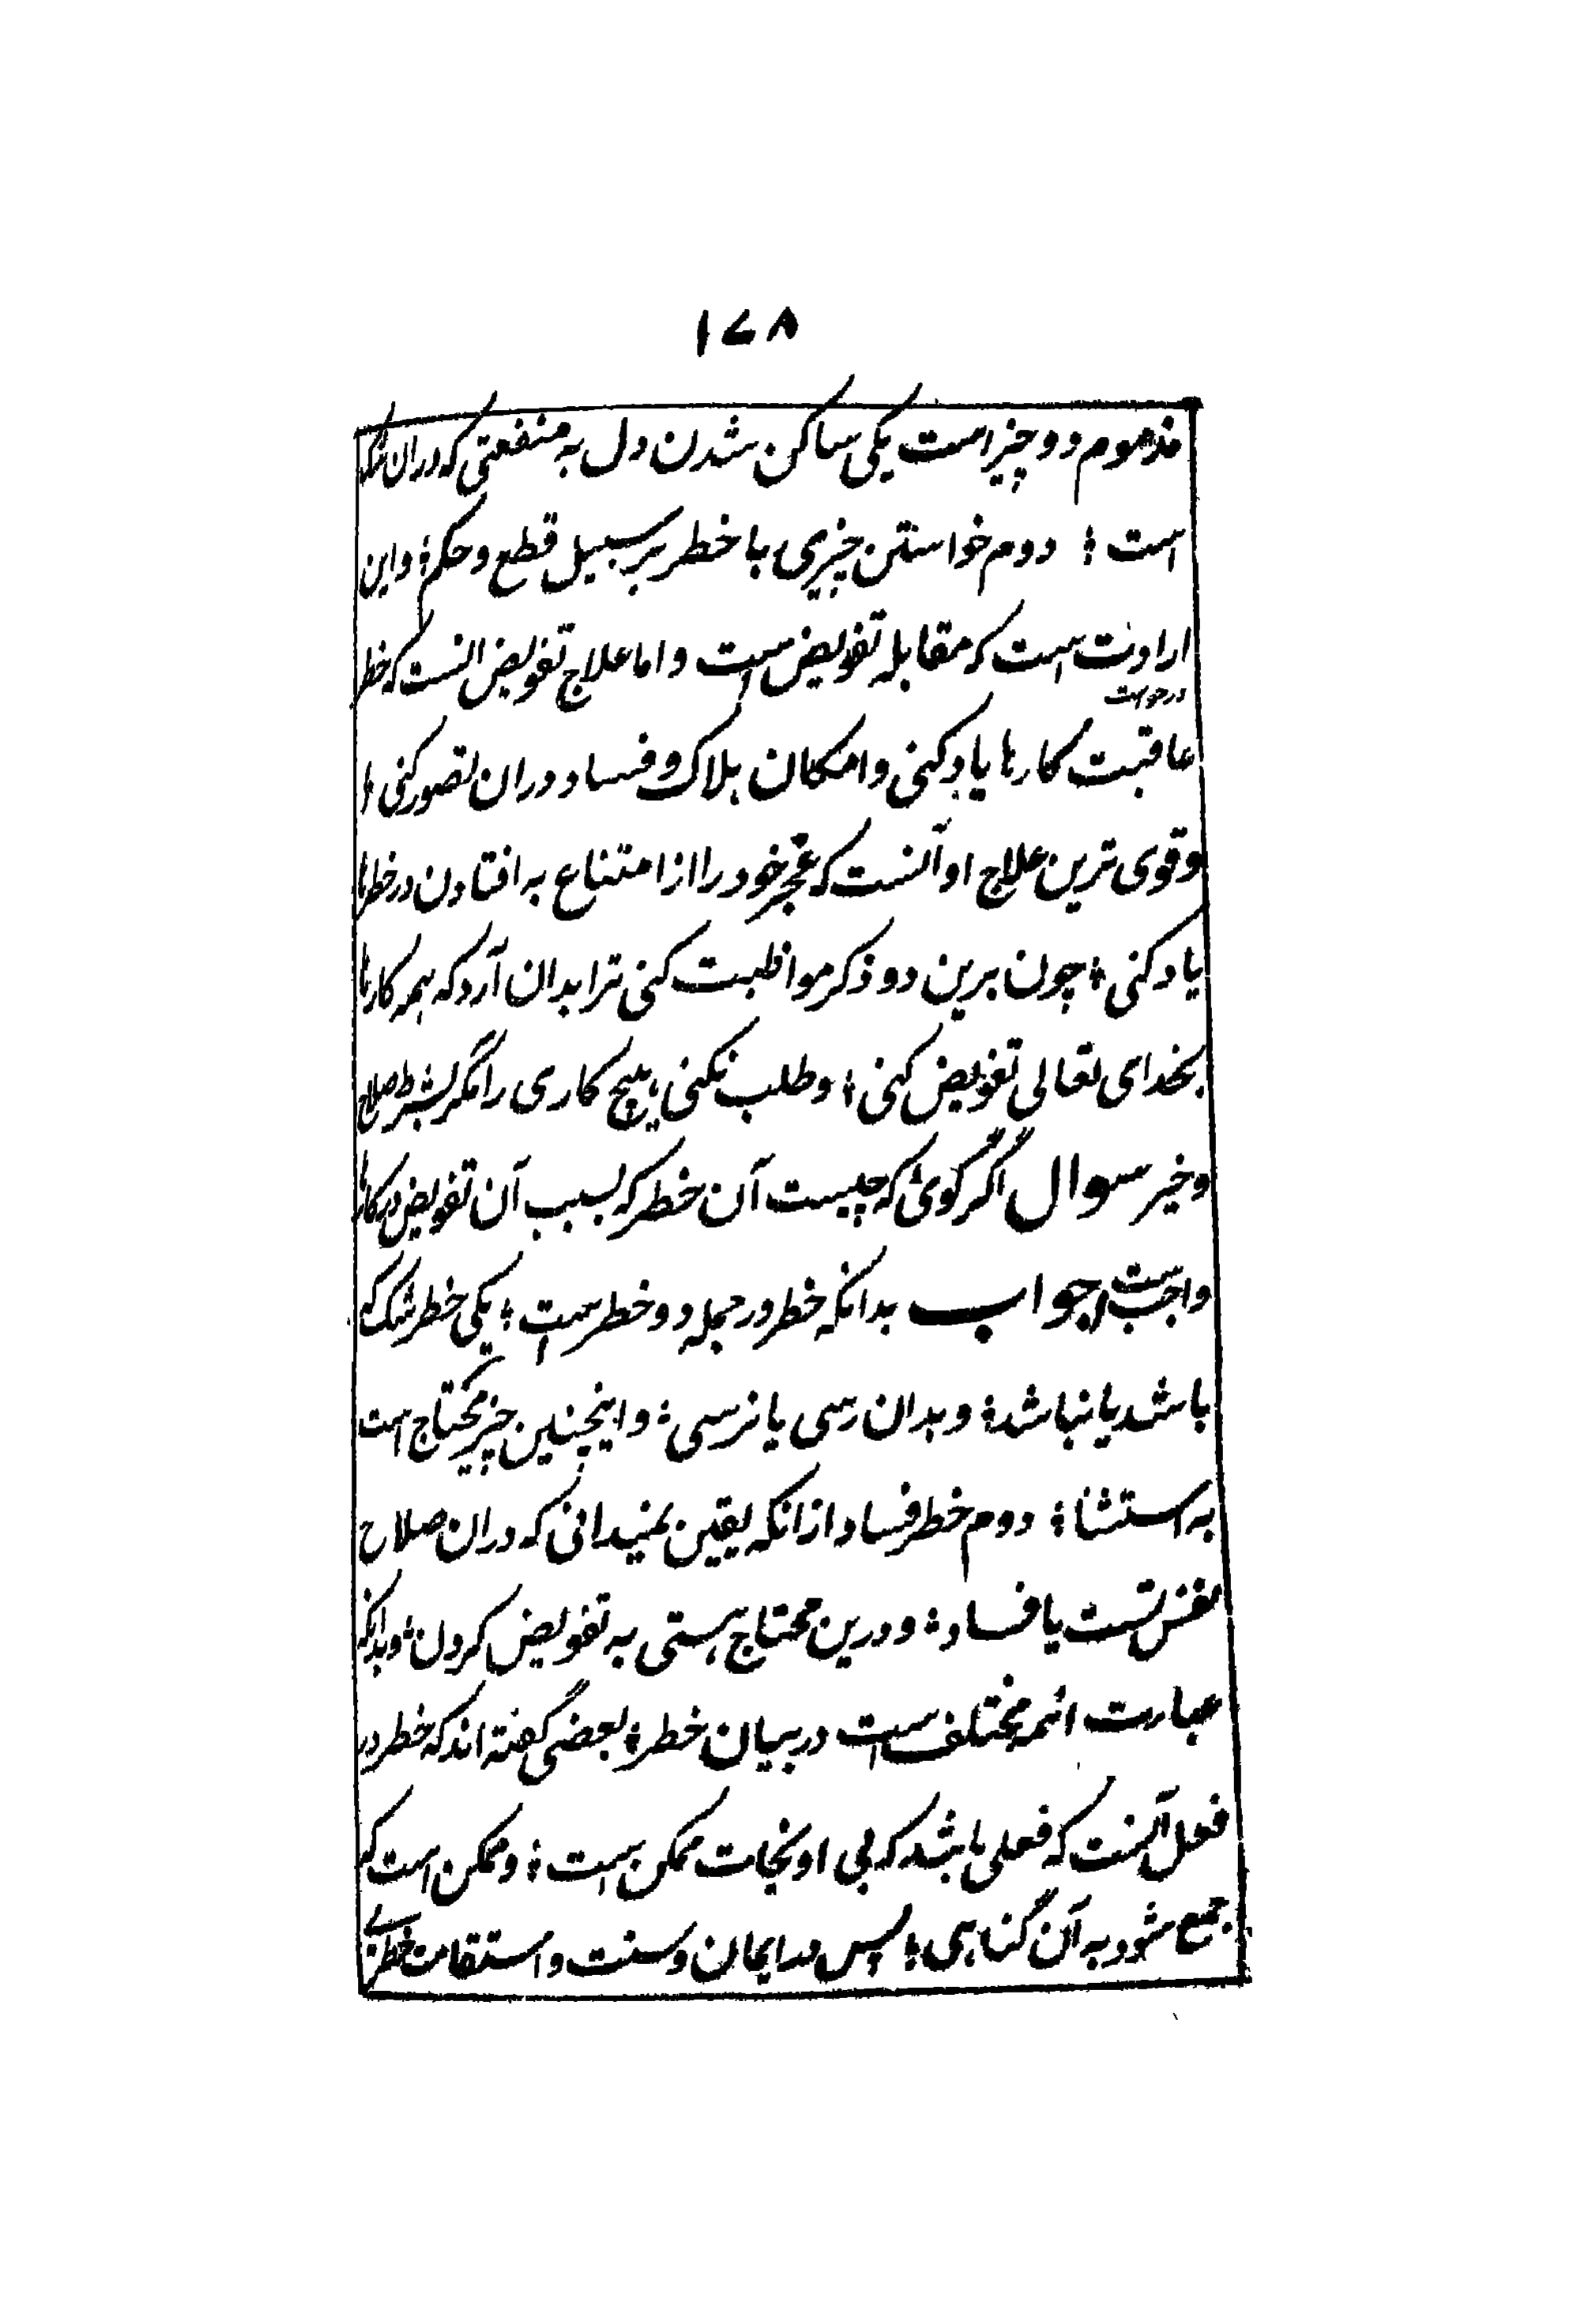 ۱۷۸
مذموم دو چیز است یکی ساکن شدن دل به منفعتی که دران شک
است ؛ دوم خواستن چیزی با خطر بر سبیل قطع و حکم ؛ و این
ارادت است که مقابله تفویض است و اما علاج تفویض انست که خطر
درخواست
عاقبت کارها یاد کنی و امکان هلاک و فساد دران تصور کنی
و قوی ترین علاج او آنست که عجز خود را از امتناع به افتادن در خطرها
یاد کنی ؛ چون برین دو ذکر مواظبت کنی ترا بدان آرد که همه کارها
بخدای تعالی تفویض کنی ؛ و طلب نکنی هیچ کاری را مگر بشرط صلاح
و خیر سوال اگر گوئی که چیست آن خطر که بسبب آن تفویض در کارها
واجب است جواب بدانکه خطر در جمله دو خطر است ؛ یکی خطر شک که
باشد یا نباشد ؛ و بدان رسی یا نرسی ؛ و اینچنین چیز محتاج است
به استثنا ؛ دوم خطر فساد از انکه یقین نمیدانی که دران صلاح
نفس تست یا فساد ؛ و درین محتاج هستی به تفویض کردن ؛ و بدانکه
عبارت ائمه مختلف است در بیان خطر ؛ بعضی گفته اند که خطر در
فعل آنست که فعلی باشد که بی او نجات ممکن است ؛ و ممکن است که
جمع شود به آن گناهی ؛ پس در ایمان و سنت و استقامت خطری